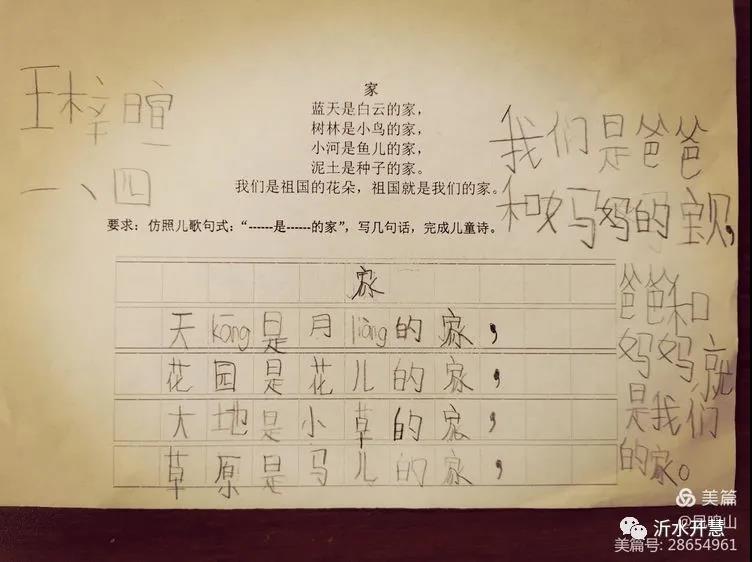 王梓暄
一、四
家
蓝天是白云的家，
树林是小鸟的家，
小河是鱼儿的家，
泥土是种子的家。
我们是祖国的花朵，祖国就是我们的家。
要求：仿照儿歌句式：“------是------的家”，写几句话，完成儿童诗。
家
天kōng是月liàng的家，
花园是花儿的家，
大地是小草的家，
草原是马儿的家，
我们是爸爸
和妈妈的宝贝，
爸爸和
妈妈就
是我们
的家。
美篇
@昆嵛山
沂水开慧
美篇号: 28654961